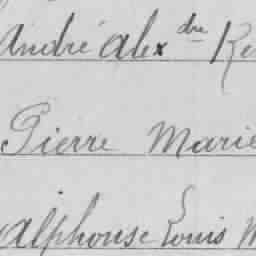 André Alex dre
Pierre Marie
Alphonse Louis